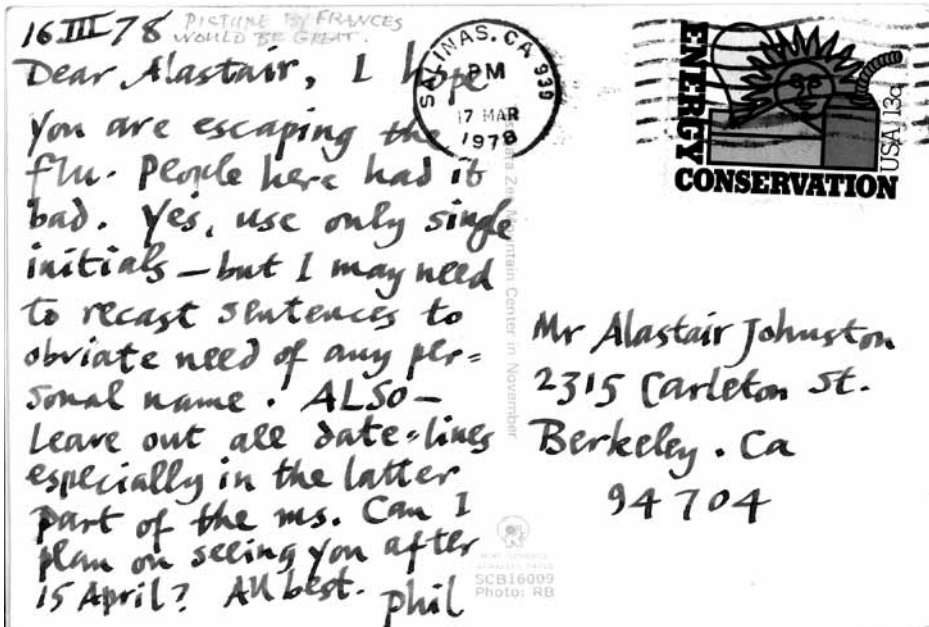 16 III 78
PICTURE BY FRANCES
WOULD BE GREAT.
Dear Alastair, I hope
you are escaping the
flu. People here had it
bad. Yes, use only single
initials — but I may need
to recast sentences to
obviate need of any per=
sonal name. ALSO —
Leave out all date=lines
especially in the latter
part of the ms. Can I
plan on seeing you after
15 April? All best. Phil
SALINAS, CA 939
PM
17 MAR
1978
ENERGY
CONSERVATION
USA 13c
Mountain Center in November
Mr Alastair Johnston
2315 Carleton St.
Berkeley. Ca
94704
SCB16009
Photo: RB